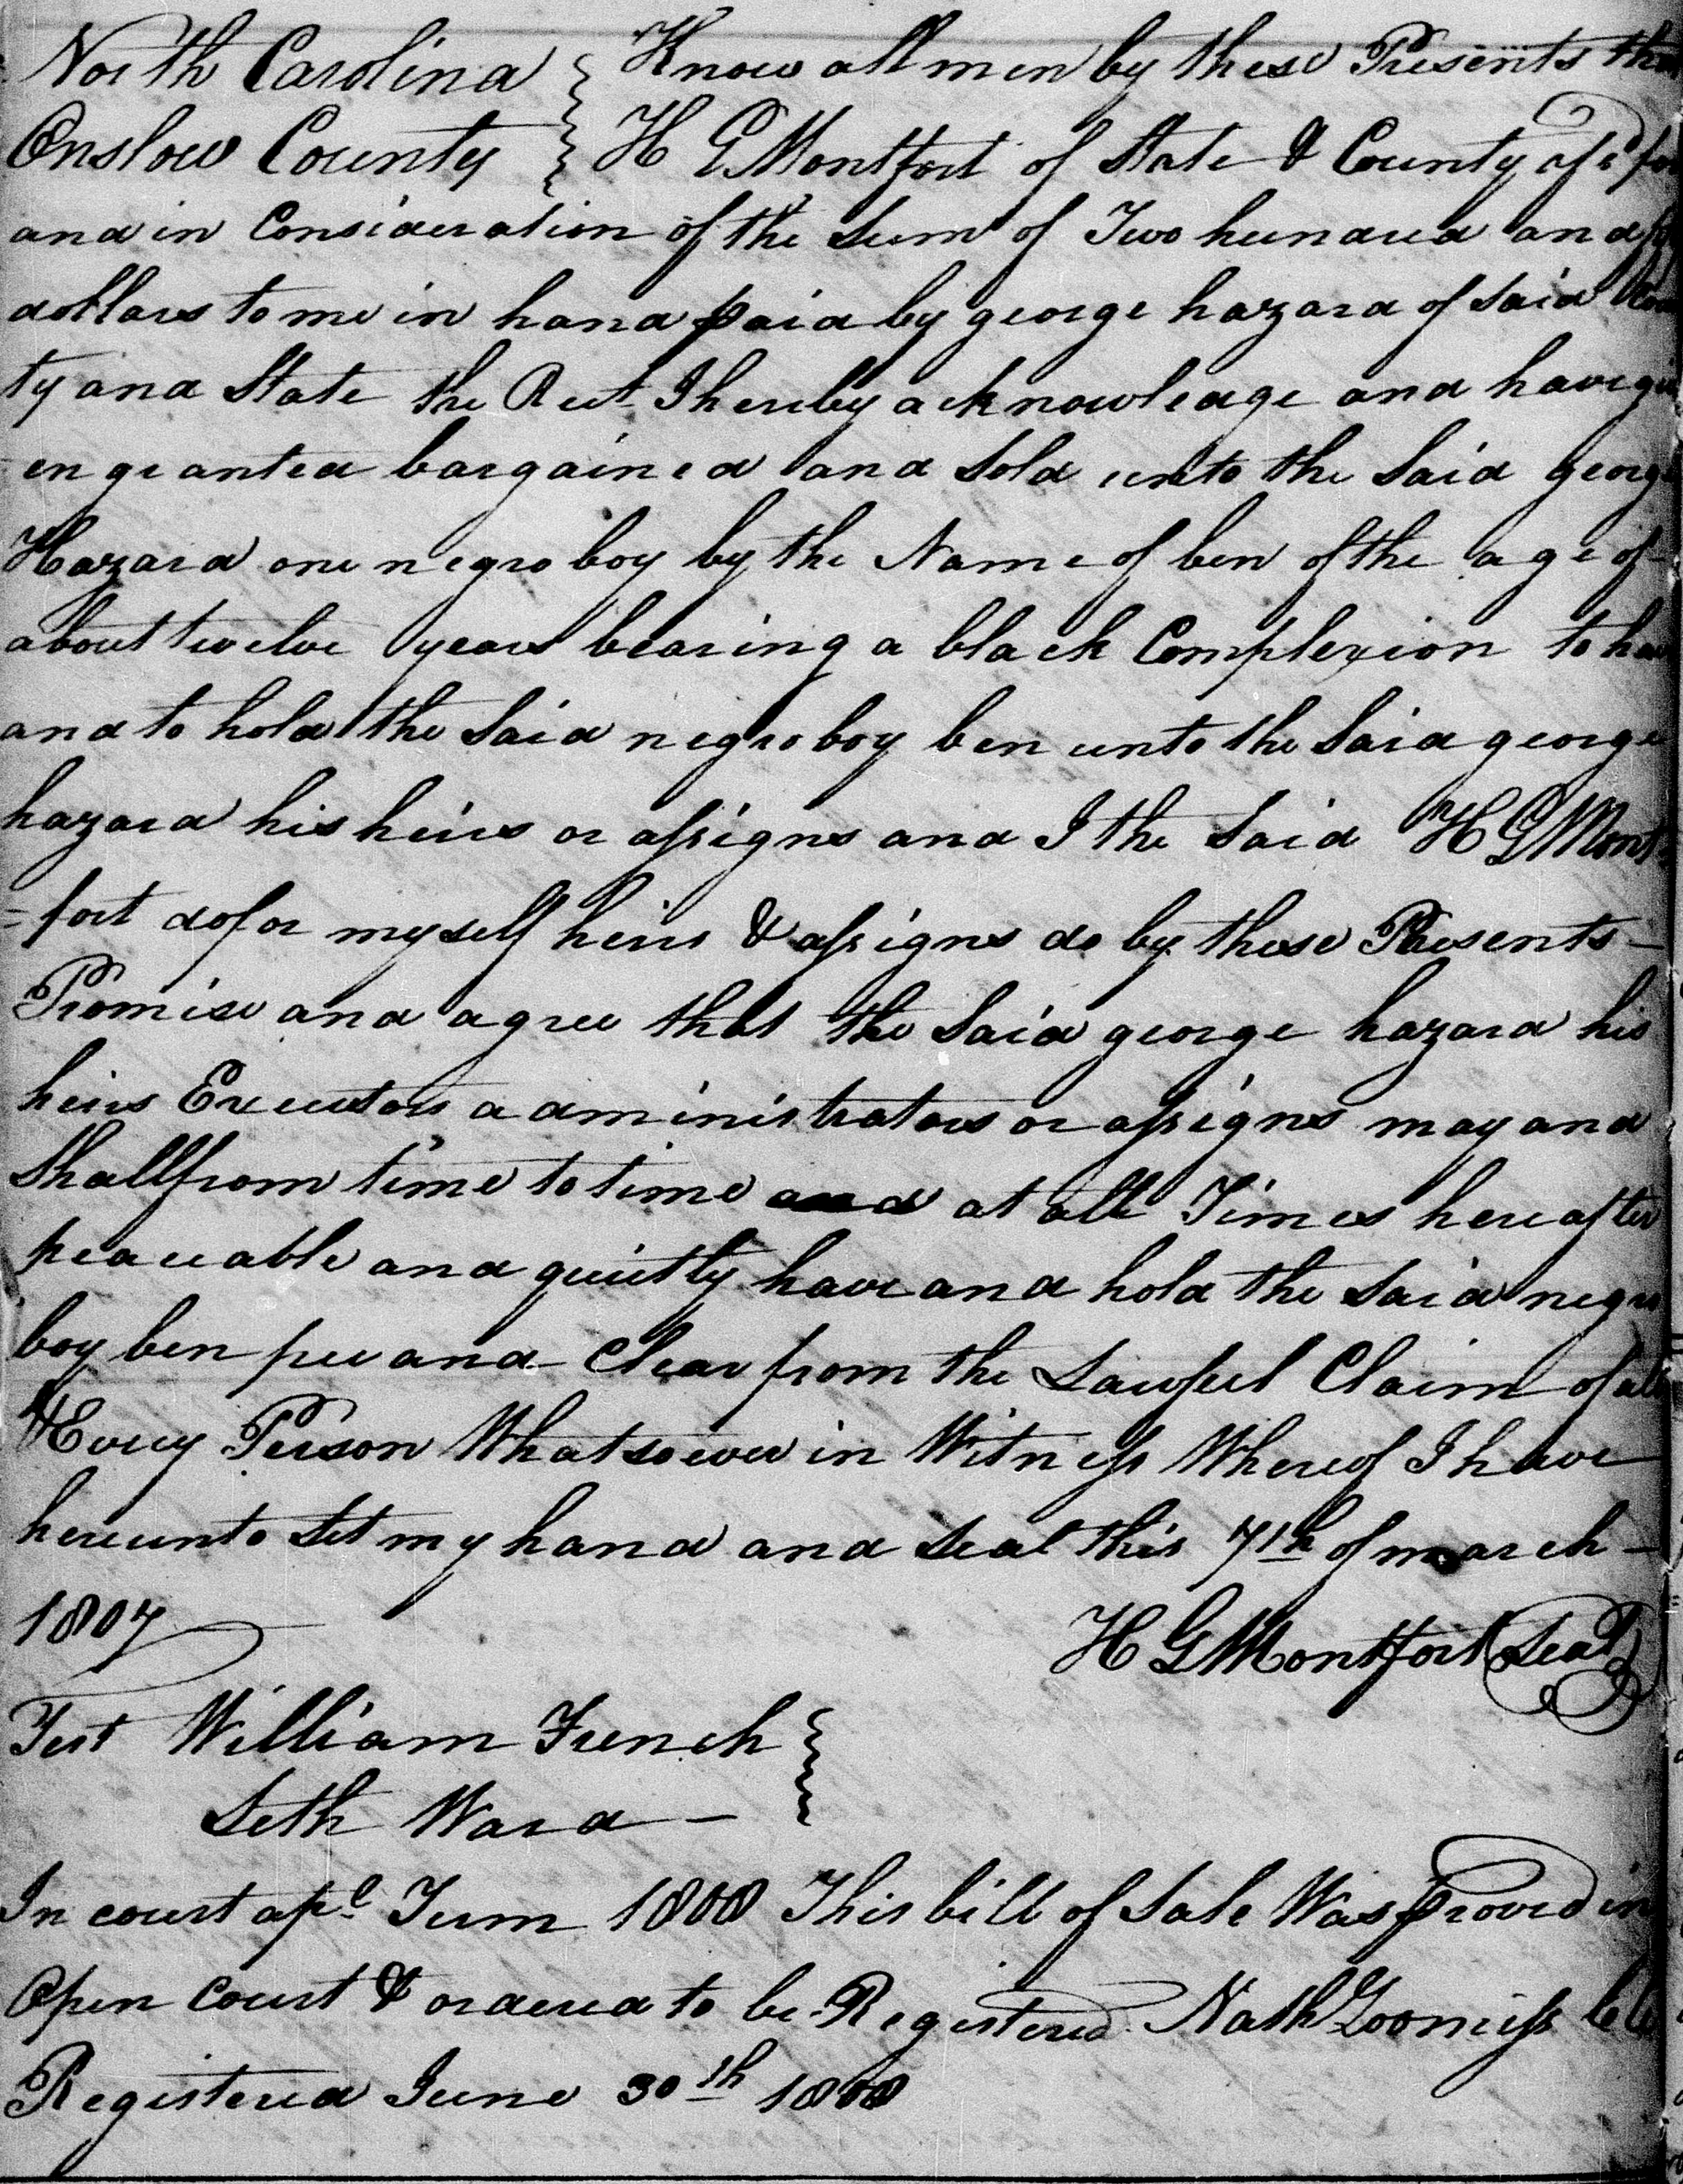 North Carolina } Know all men by these Presents tha
Onslow County } H G Montfort of State & County afsd for
and in Consideration of the Sum of Two hundred and
dollars to me in hand paid by george hazard of Said Coun
ty and State the Rect I hereby acknowledge and have giv
en granted bargained and Sold unto the Said george
Hazard one negro boy by the Name of ben of the age of
about twelve years bearing a black Complexion to have
and to hold the Said negro boy ben unto the Said george
hazard his heirs or assigns and I the Said H G Mont
=fort do for myself heirs & assigns do by these Presents -
Promise and agree that the Said george hazard his
heirs Executors administrators or assigns may and
Shall from time to time and at all Times hereafter
peaceable and quietly have and hold the Said negro
boy ben free and Clear from the Lawful Claim of all
& Every Person Whatsoever in Witness Whereof I have
hereunto Set my hand and Seal this 7th of march -
1807
H G Montfort (Seal)
Test William French }
Seth Ward - }
In court apl Term 1808 This bill of Sale Was proved in
Open Court & ordered to be Registered Nath Loomiss
Registered June 30th 1808